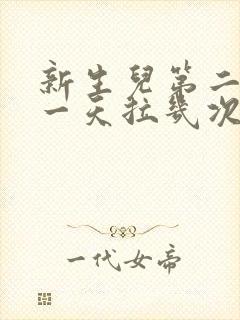 新生兒第二
一天拉幾次
一代女帝